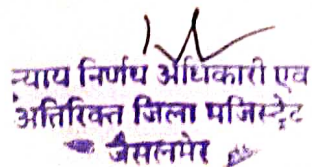 न्याय निर्णय अधिकारी एवं
अतिरिक्त जिला मजिस्ट्रेट
जैसलमेर